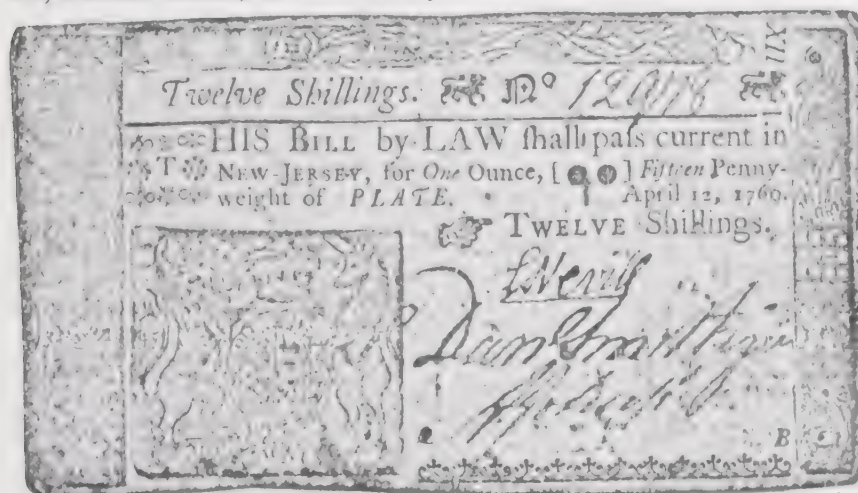 XII
Twelve Shillings. No
THIS BILL by LAW ſhall paſs current in
NEW-JERSEY, for One Ounce, [ ] Fifteen Penny-
weight of PLATE. April 12, 1760.
TWELVE Shillings.
SNevill
B